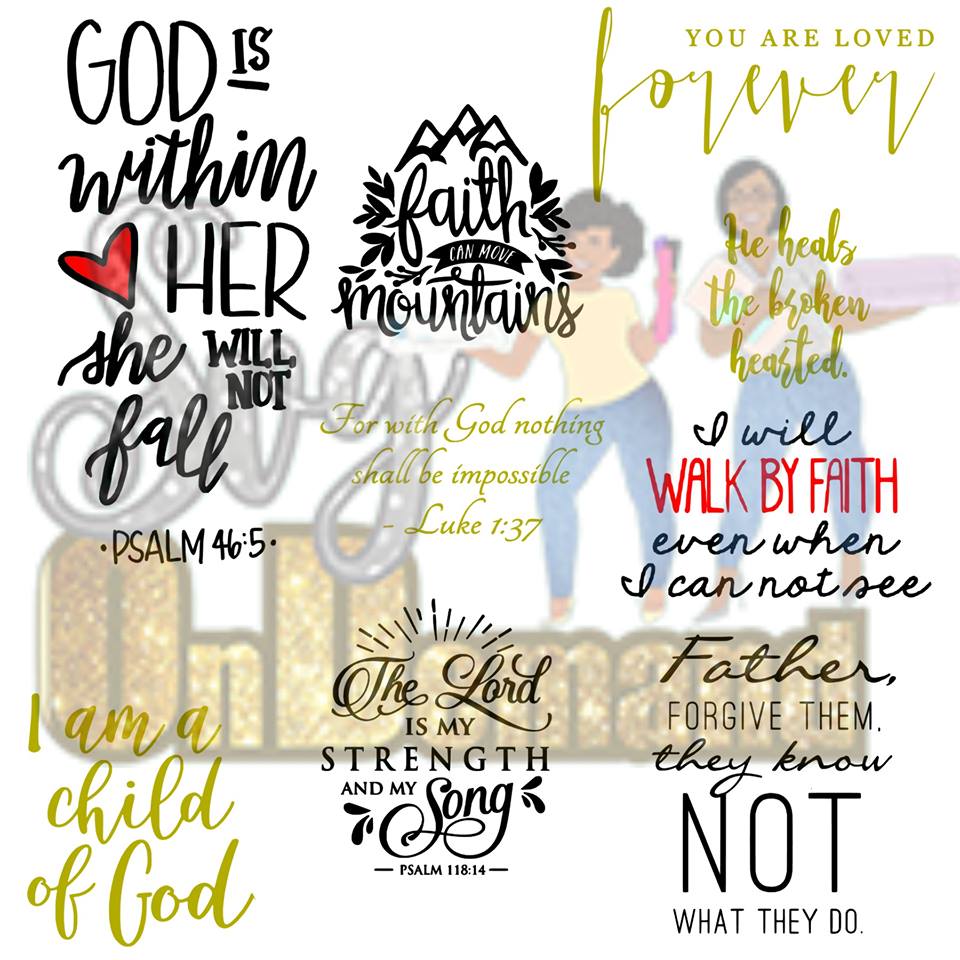 GOD IS
within
HER
she WILL
NOT
fall
·PSALM 46:5·
faith
CAN MOVE
mountains
YOU ARE LOVED
forever
He heals
the broken
hearted.
For with God nothing
shall be impossible
- Luke 1:37
I will
WALK BY FAITH
even when
I can not see
I am a
child
of God
The Lord
IS MY
STRENGTH
AND MY Song
— PSALM 118:14 —
Father,
FORGIVE THEM,
they know
NOT
WHAT THEY DO.
Svg
OnDemand